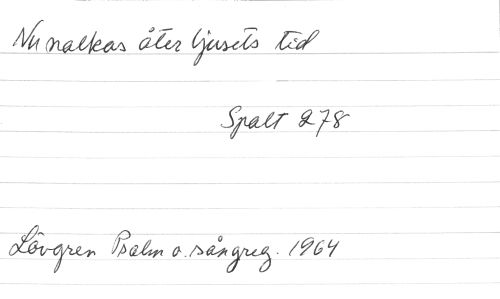 Nu nalkas åter ljusets tid
Spalt 278
Lövgren Psalm o. sångreg. 1964